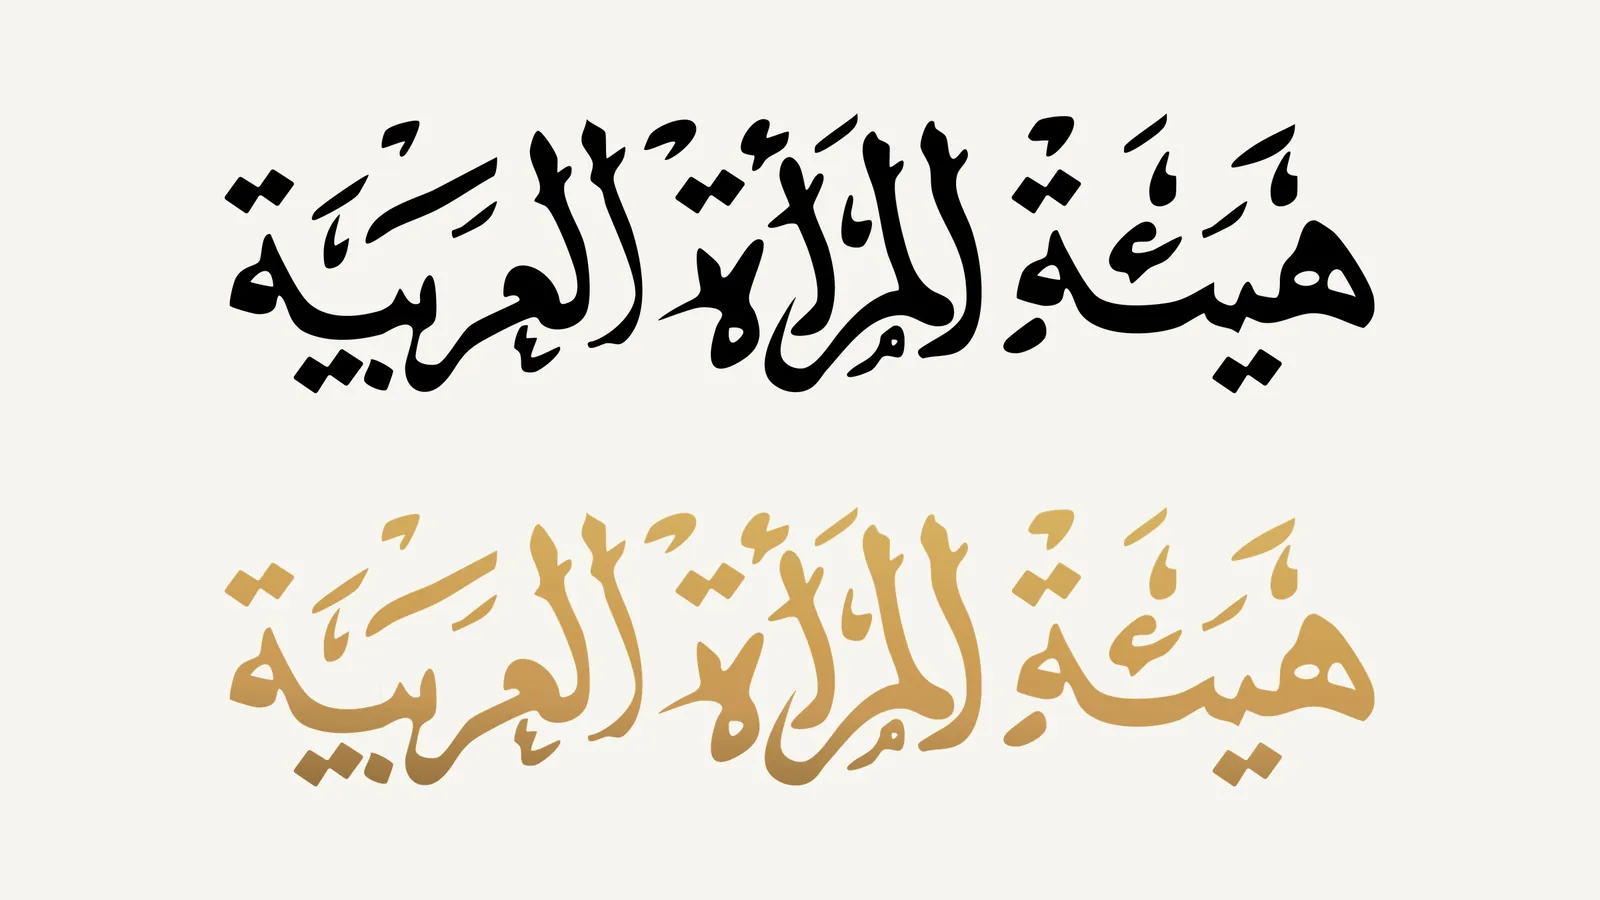 هيئة المرأة العربية
هيئة المرأة العربية